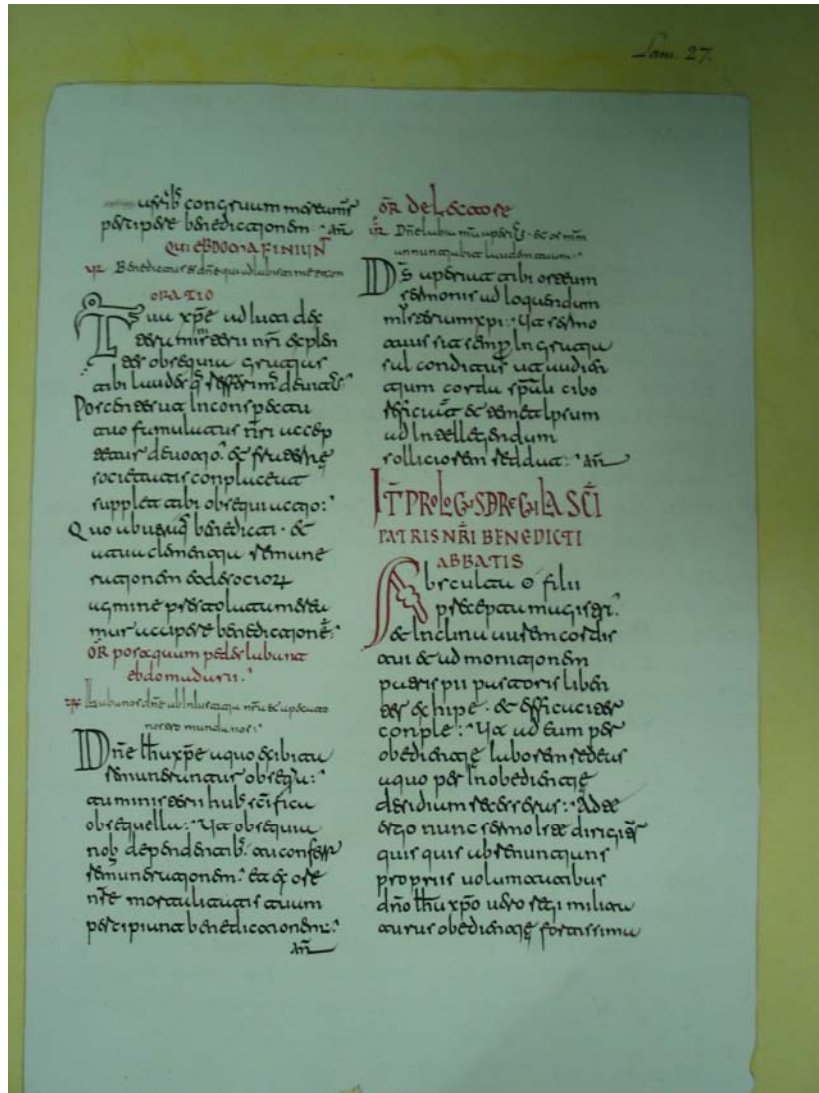 Lam. 27.
congruum mereamr
percipere benedictionem : am
QUI EBDOMA FINIUNT
Benedictus es dne qui adiubasti me et con
ORATIO
xpe ad
misterii nri explen
tes obsequia gratias
tibi laudesq; referims
Poscentes ut in conspectu
tuo famulatus nri accep
tetur devotio : et fraterne
societatis conplaceat
tibi obsequi actio :
Quo benedicti . et
clementia remune
rationem
agmine
mur accipere benedictione :
OR post quum pedes labant
ebdomadarii .
Laba nos dne ab iniustitia nra et a peccato
nostro munda nos :
Dne ihu xpe a quo exibita
remunerantur obsequia :
ministerii scifica
obsequella : Ita obsequia
nob dependentib
remunerationem : et ex ore
nre mortalitatis tuum
percipiant benedictionem :
am
OR de Lectore
Dne labia mea aperies . et os meum
annuntiabit laudem tuam :
Ds aperiat tibi ostium
sermonis ad loquendum
misterium xpi : Ita sermo
tuus sit semp in gratia
sal conditus ut audien
tium corda spuali cibo
reficiat et temet ipsum
ad intellegendum
solliciorem reddat : am
IT PROLOGUS DE REGULA SCI
PATRIS NRI BENEDICTI
ABBATIS
Absculta o filii
precepta magistri :
et inclina aurem cordis
tui et admonitionem
pii patris liben
ter exhipe . et efficaciter
conple : Ut ad eum per
obedientie laborem redeas
a quo per inobedientie
desidium recesseras : Ad te
ergo nunc sermo iste dirigitur
quis quis abrenuntians
propriis voluntatibus
dno ihu xpo vero regi milita
turus obedientie fortissima